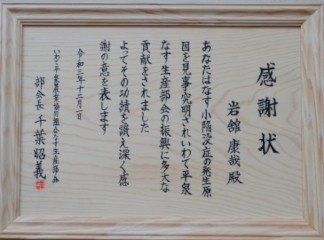 感謝状
岩舘 康哉 殿
あなたはなす小陥没症の発生原
因を見事究明されいわて平泉
なす生産部会の振興に多大な
貢献をされました
よってその功績を讃え深く感
謝の意を表します
令和三年十二月一日
いわて平泉農業協同組合なす生産部会
部会長 千葉昭義